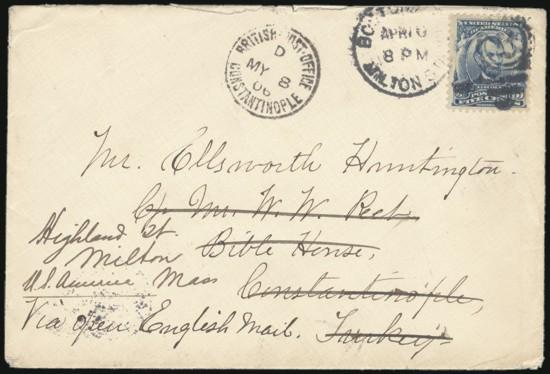 BRITISH POST OFFICE
D
MY 8
06
CONSTANTINOPLE
BOSTON
APR
8 PM
MILTON
UNITED STATES
OF AMERICA
FIVE
Mr. Ellsworth Huntington.
C/o Mr. W. W. Peet
Bible House,
Constantinople,
Turkey.
Highland St.
Milton
Mass
U.S. America
Via open English Mail.